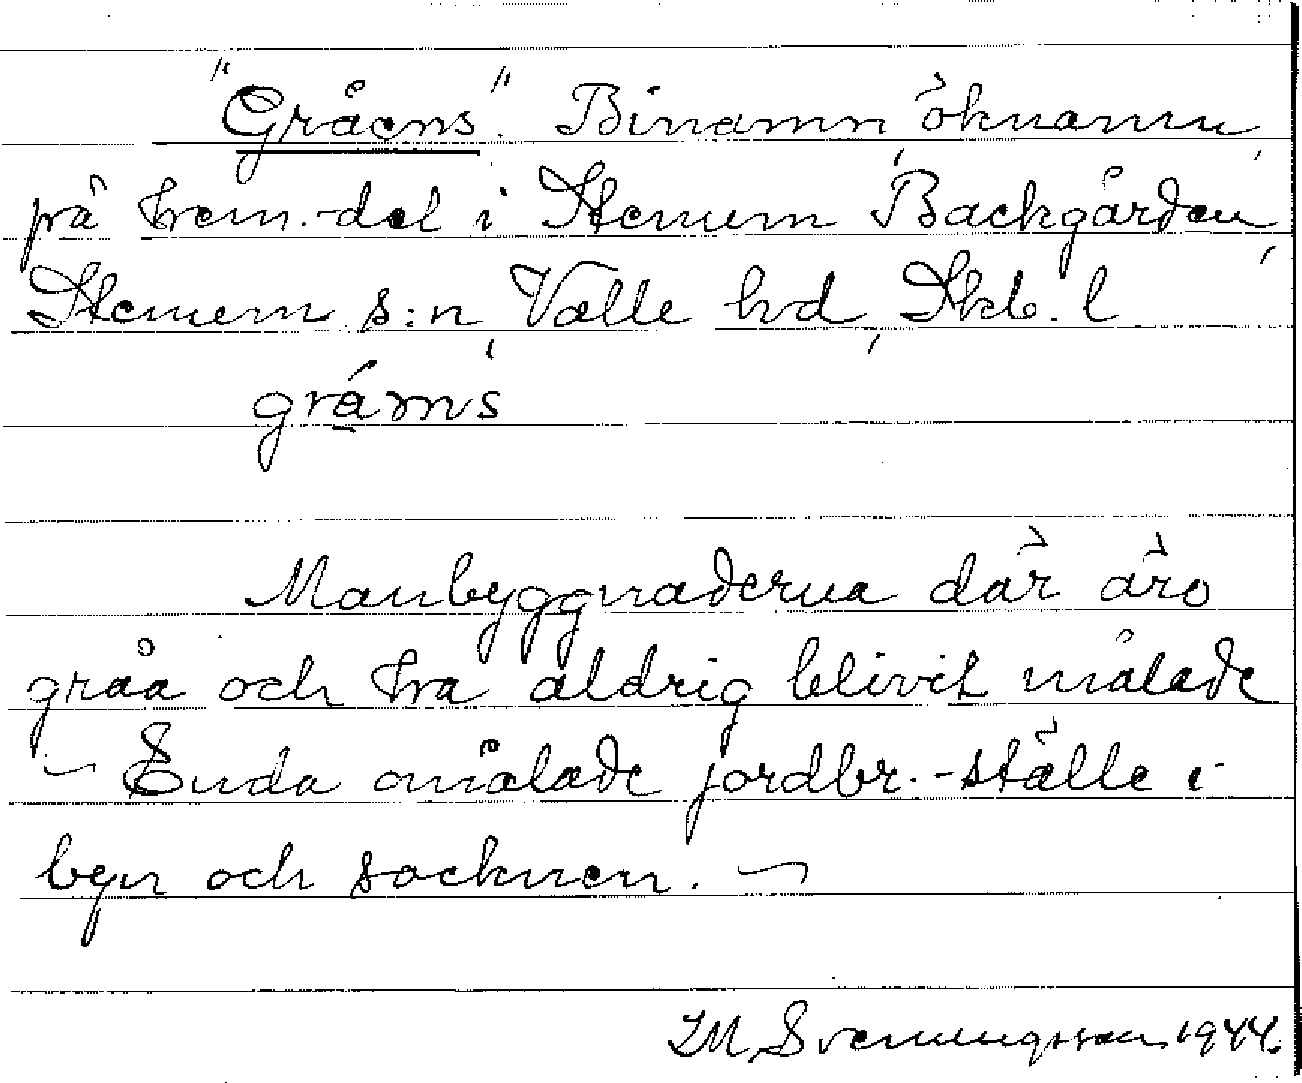 "Gråens". Binamn, öknamn,
på hem.-del i Stenum, Backgården,
Stenum s:n, Valle hd, Skb. l
gråms
Manbyggnaderna där äro
gråa och ha aldrig blivit målade
– Enda omålade jordbr.-ställe i
byn och socknen. –
I M Svenungsson 1944.